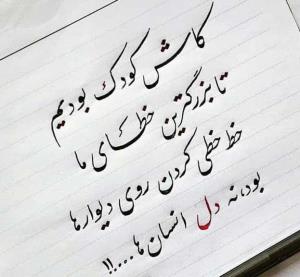 کاش کودک بودیم
تا بزرگترین خطای ما
خط خطی کردن روی دیوارها
بود، نه دل انسان ها....!!